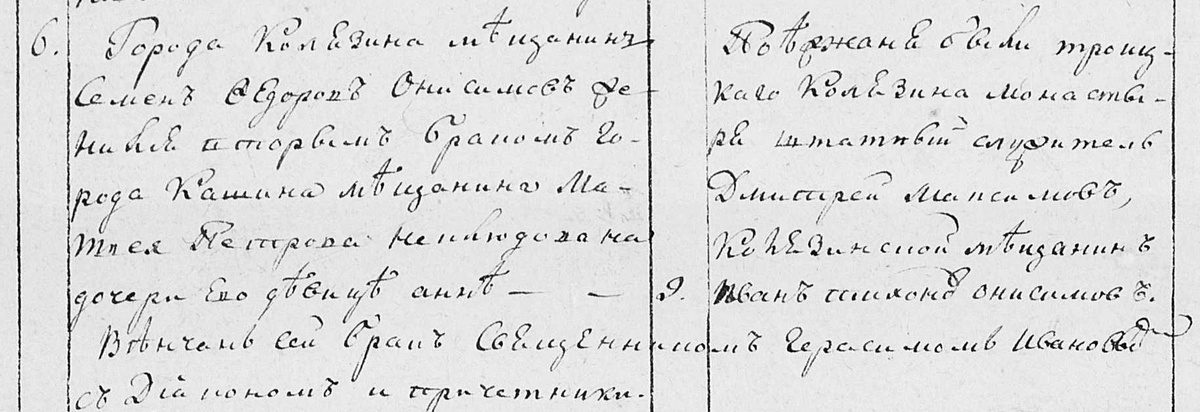 6. Города Колязина мѣщанинъ
Семенъ Ѳедоровъ Онисимовъ же-
нился вторымъ бракомъ Го-
рода Кашина мѣщанина Ма-
твея Петрова Неплюдова на
дочери Его дѣвицѣ аннѣ — —
Поѣзжанѣ были троиц-
каго Колязина монасты-
ря штатный служитель
Дмитрей Максимовъ,
Колязинской мѣщанинъ
2. Иванъ тихонов онисимовъ.
Вѣнчанъ сей бракъ Священникомъ Герасимомъ Ивановым
съ Діакономъ и причетники.